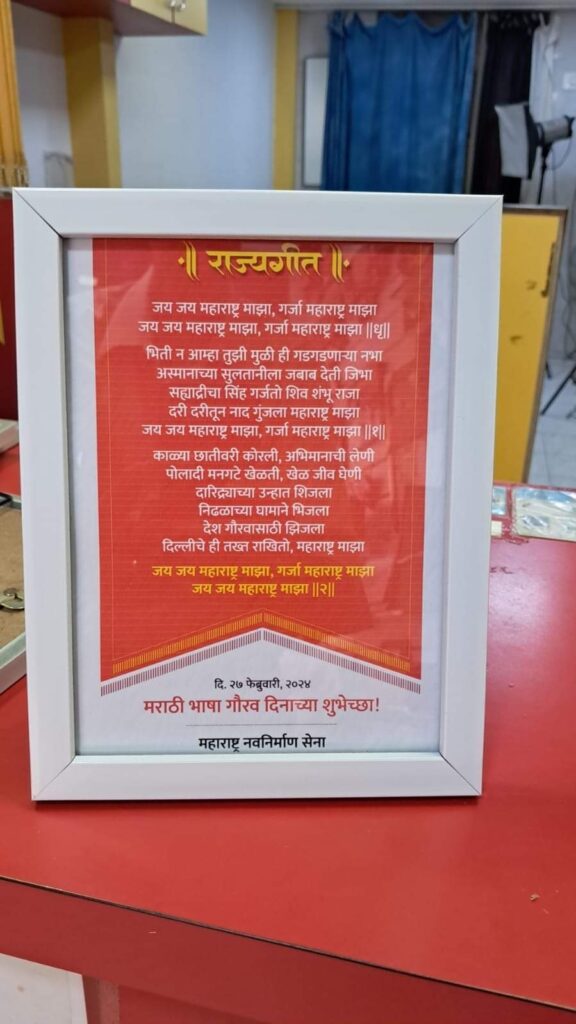 ॥ राज्यगीत ॥
जय जय महाराष्ट्र माझा, गर्जा महाराष्ट्र माझा
जय जय महाराष्ट्र माझा, गर्जा महाराष्ट्र माझा ||धृ||
भिती न आम्हा तुझी मुळी ही गडगडणाऱ्या नभा
अस्मानाच्या सुलतानीला जबाब देती जिभा
सह्याद्रीचा सिंह गर्जतो शिव शंभू राजा
दरी दरीतून नाद गुंजला महाराष्ट्र माझा
जय जय महाराष्ट्र माझा, गर्जा महाराष्ट्र माझा ||१||
काळ्या छातीवरी कोरली, अभिमानाची लेणी
पोलादी मनगटे खेळती, खेळ जीव घेणी
दारिद्र्याच्या उन्हात शिजला
निढळाच्या घामाने भिजला
देश गौरवासाठी झिजला
दिल्लीचे ही तख्त राखितो, महाराष्ट्र माझा
जय जय महाराष्ट्र माझा, गर्जा महाराष्ट्र माझा
जय जय महाराष्ट्र माझा ||२||
दि. २७ फेब्रुवारी, २०२४
मराठी भाषा गौरव दिनाच्या शुभेच्छा!
महाराष्ट्र नवनिर्माण सेना